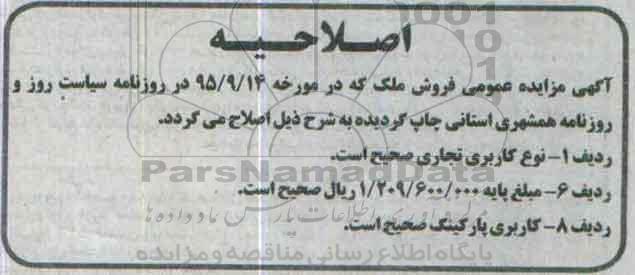 اصلاحیه
آگهی مزایده عمومی فروش ملک که در مورخه ۹۵/۹/۱۴ در روزنامه سیاست روز و
روزنامه همشهری استانی چاپ گردیده به شرح ذیل اصلاح می گردد.
ردیف ۱- نوع کاربری تجاری صحیح است.
ParsNamadData
ردیف ۶- مبلغ پایه ۱/۲۰۹/۶۰۰/۰۰۰ ریال صحیح است.
ردیف ۸- کاربری پارکینگ صحیح است.
پایگاه اطلاع رسانی مناقصه و مزایده